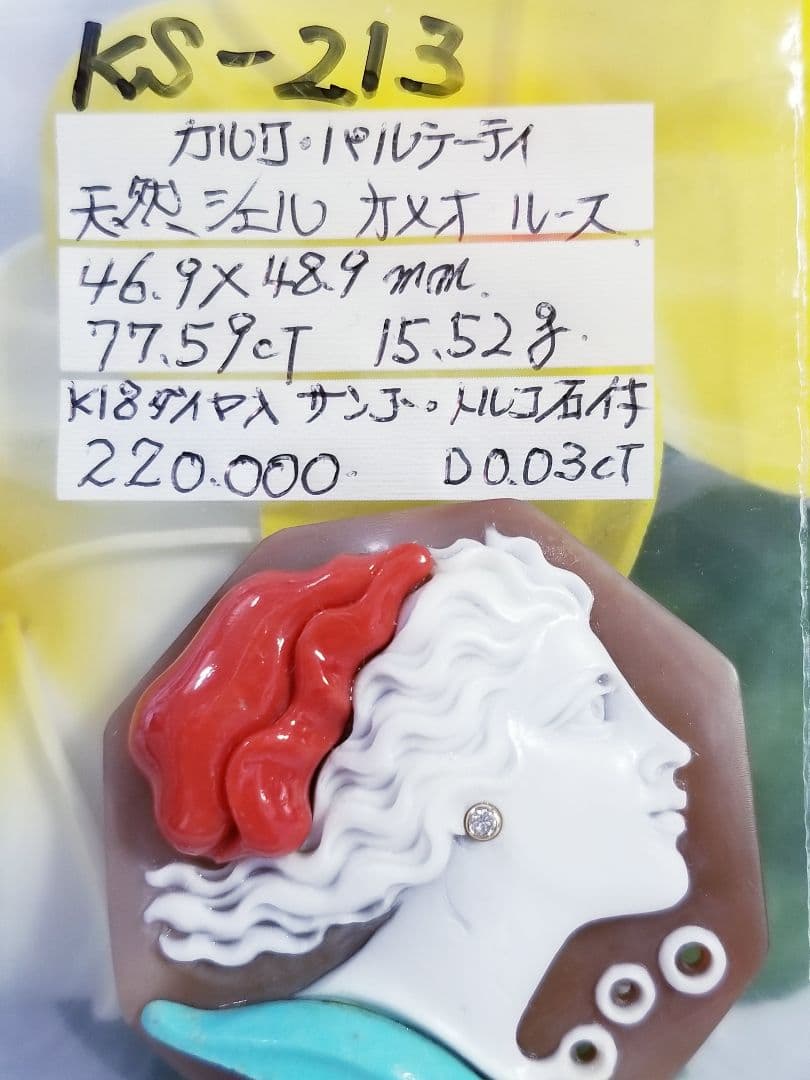 KS-213
カルロ・パルラーティ
天然シェル カメオ ルース
46.9×48.9mm.
77.59cT 15.52g.
K18ダイヤ入 サンゴ・トルコ石付
220.000. D0.03cT